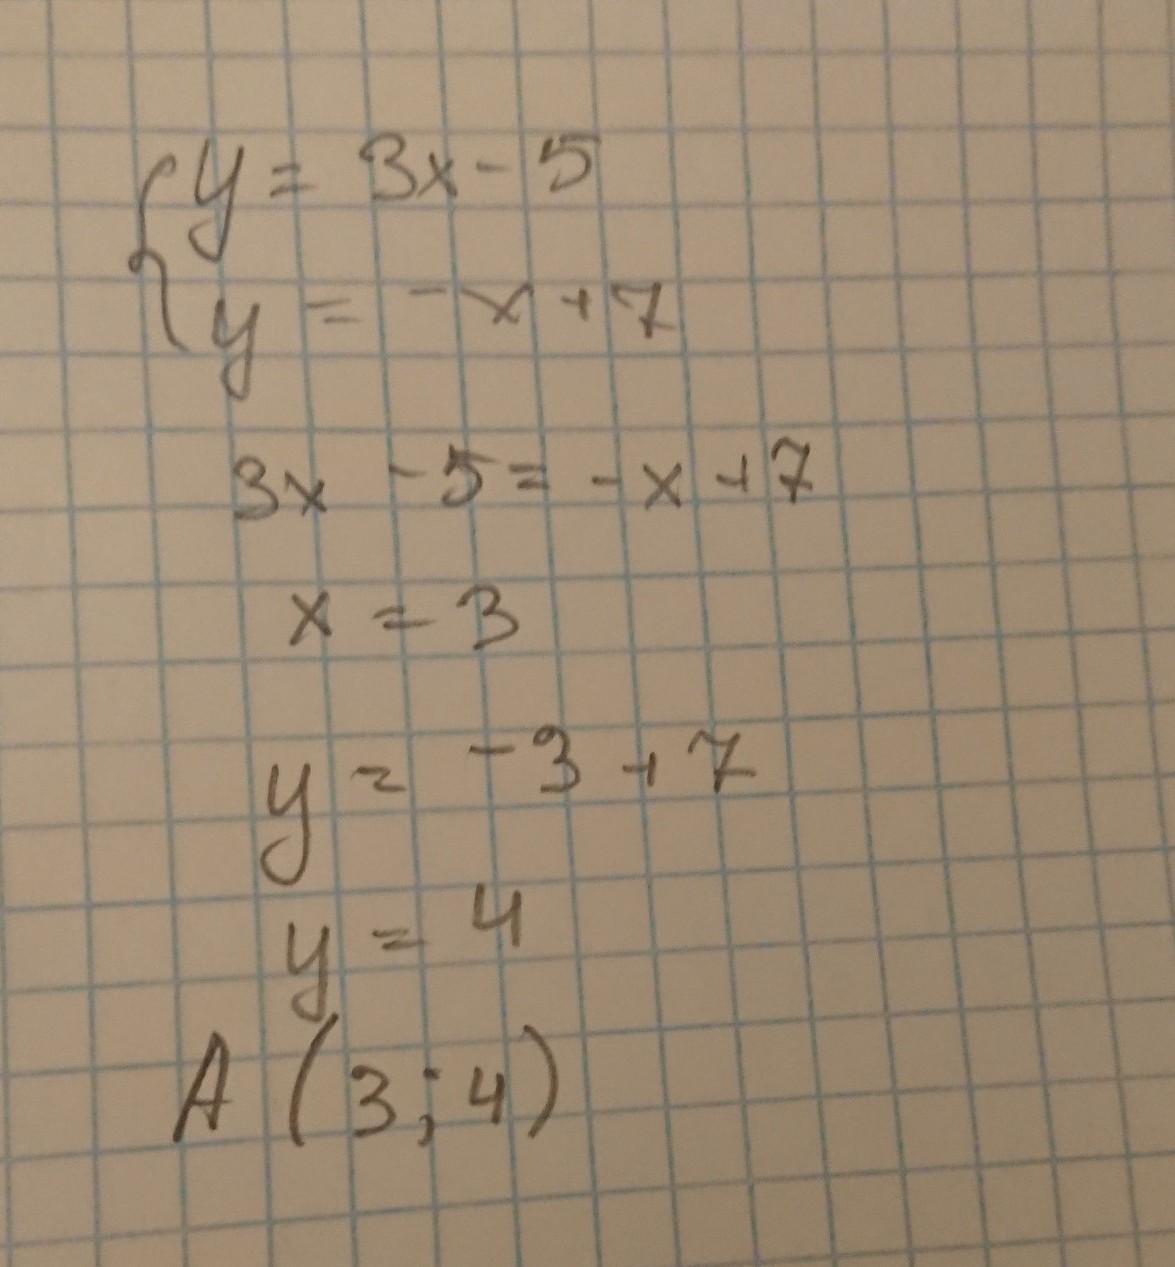 { y = 3x - 5
y = -x + 7
3x - 5 = -x + 7
x = 3
y = -3 + 7
y = 4
A (3; 4)